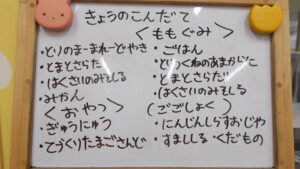 きょうのこんだて
<ももぐみ>
・とりのまーまれーどやき
・とまとさらだ
・はくさいのみそしる
・みかん
<おやつ>
・ぎゅうにゅう
・てづくりたまごさんど
・ごはん
・とりつくねのあまからに
・とまとさらだ
・はくさいのみそしる
(ごごしょく)
・にんじんしらすおじや
・すましじる くだもの